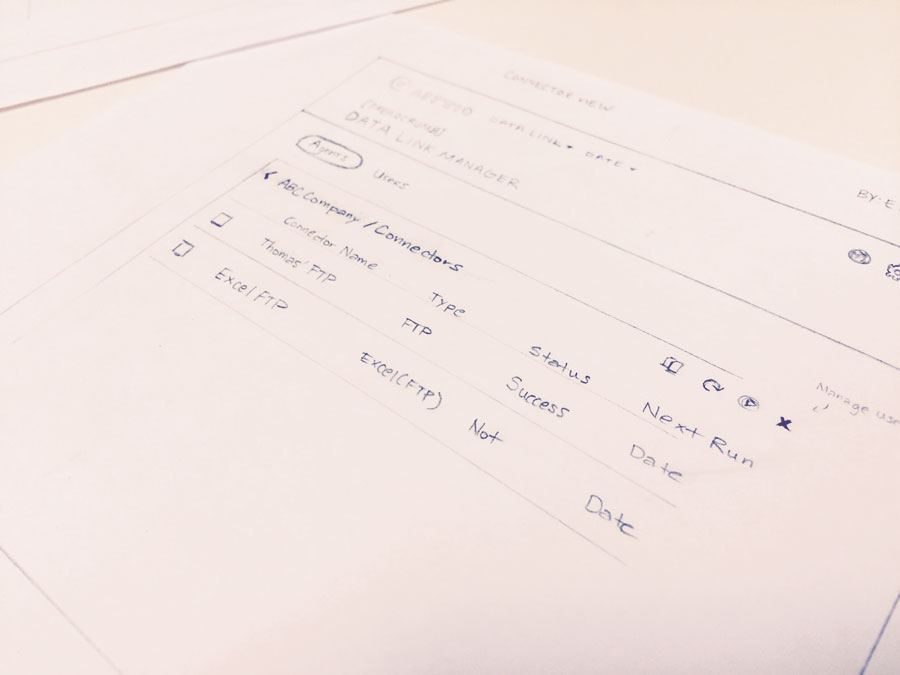 CONNECTOR VIEW
BY: E
APPTIO DATA LINK DATE
[BREADCRUMBS]
DATA LINK MANAGER
Agents Users
ABC Company / Connectors
Manage Use
Connector Name Type Status Next Run
Thomas' FTP FTP Success Date
Excel FTP Excel (FTP) Not Date